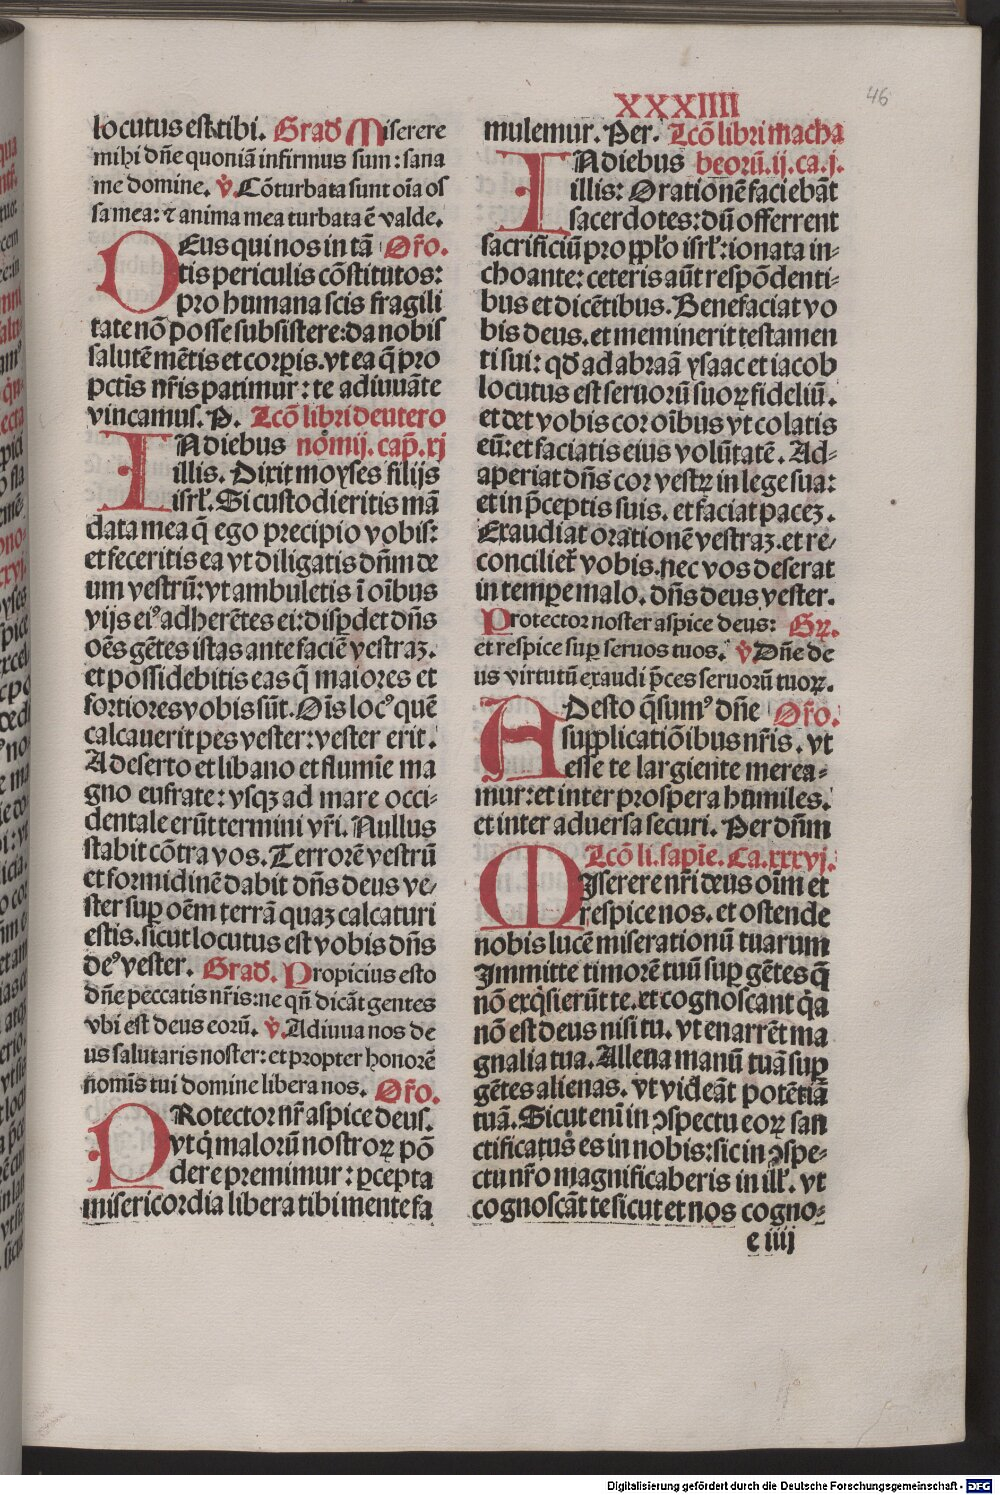 XXXIIII
46
locutus est tibi. Grad̄ Miserere
mihi dn̄e quoniā infirmus sum: sana
me domine. v̄. Cōturbata sunt oīa os
sa mea: ⁊ anima mea turbata ē valde.
DEus qui nos in tā Or̄o.
tis periculis cōstitutos:
pro humana scis fragili
tate nō posse subsistere: da nobis
salutē mētis et corꝑis. vt ea q̄ pro
pctīs nr̄is patimur: te adiuuāte
vincamus. P. Lcō libri deutero
INdiebus nomij. cap̄. xj
illis. Dixit moyses filijs
isrł. Si custodieritis mā
data mea q̄ ego precipio vobis:
et feceritis ea vt diligatis dn̄m de
um vestrū: vt ambuletis ī oībus
vijs eiꝰ adherētes ei: disꝑdet dn̄s
oēs gētes istas ante faciē vestraꝫ.
et possidebitis eas q̄ maiores et
fortiores vobis sūt. Oīs locꝰ quē
calcauerit pes vester: vester erit.
A deserto et libano et flumīe ma
gno eufrate: vsqꝫ ad mare occi-
dentale erūt termini vr̄i. Nullus
stabit cōtra vos. Terrorē vestrū
et formidinē dabit dn̄s deus ve-
ster suꝑ oēm terrā quaꝫ calcaturi
estis. sicut locutus est vobis dn̄s
deꝰ vester. Grad̄. Propicius esto
dn̄e peccatis nr̄is: ne qn̄ dicāt gentes
vbi est deus eorū. v̄. Adiuua nos de
us salutaris noster: et propter honorē
nomīs tui domine libera nos. Or̄o.
PRotector nr̄ aspice deus.
vt q̇ malorū nostroꝝ pō
dere premimur: ꝑcepta
misericordia libera tibi mente fa
mulemur. Per. Lcō libri macha
INdiebus beorū. ij. ca. j.
illis: Orationē faciebāt
sacerdotes: dū offerrent
sacrificiū pro pꝑło isrł: ionata in-
choante: ceteris aūt respōdenti-
bus et dicētibus. Benefaciat vo
bis deus. et meminerit testamen
ti sui: qd̄ ad abraā ysaac et iacob
locutus est seruorū suoꝝ fideliū.
et det vobis cor oībus vt colatis
eū: et faciatis eius volūtatē. Ad-
aperiat dn̄s cor vestꝝ in lege sua:
et in p̄ceptis suis. et faciat paceꝫ.
Exaudiat orationē vestraꝫ. et re-
conciliet̄ vobis. nec vos deserat
in temꝑe malo. dn̄s deus vester.
Protector noster aspice deus: Gꝝ.
et respice suꝑ seruos tuos. v̄ Dn̄e de
us virtutū exaudi p̄ces seruorū tuoꝝ.
ADesto q̄sumꝰ dn̄e Or̄o.
supplicatiōibus nr̄is. vt
esse te largiente merea-
mur: et inter prospera humiles.
et inter aduersa securi. Per dn̄m
Lcō li. sapīe. Ca. xxxvj.
MIserere nr̄i deus oīm et
respice nos. et ostende
nobis lucē miserationū tuarum
Jmmitte timorē tuū suꝑ gētes q̄
nō exq̇sierūt te. et cognoscant q̇a
nō est deus nisi tu. vt enarrēt ma
gnalia tua. Alleua manū tuā suꝑ
gētes alienas. vt videāt potētiā
tuā. Sicut enī in ꝯspectu eoꝝ san
ctificatus es in nobis: sic in ꝯspe-
ctu nr̄o magnificaberis in iłł. vt
cognoscāt te sicut et nos cogno-
e iiij
Digitalisierung gefördert durch die Deutsche Forschungsgemeinschaft - DFG